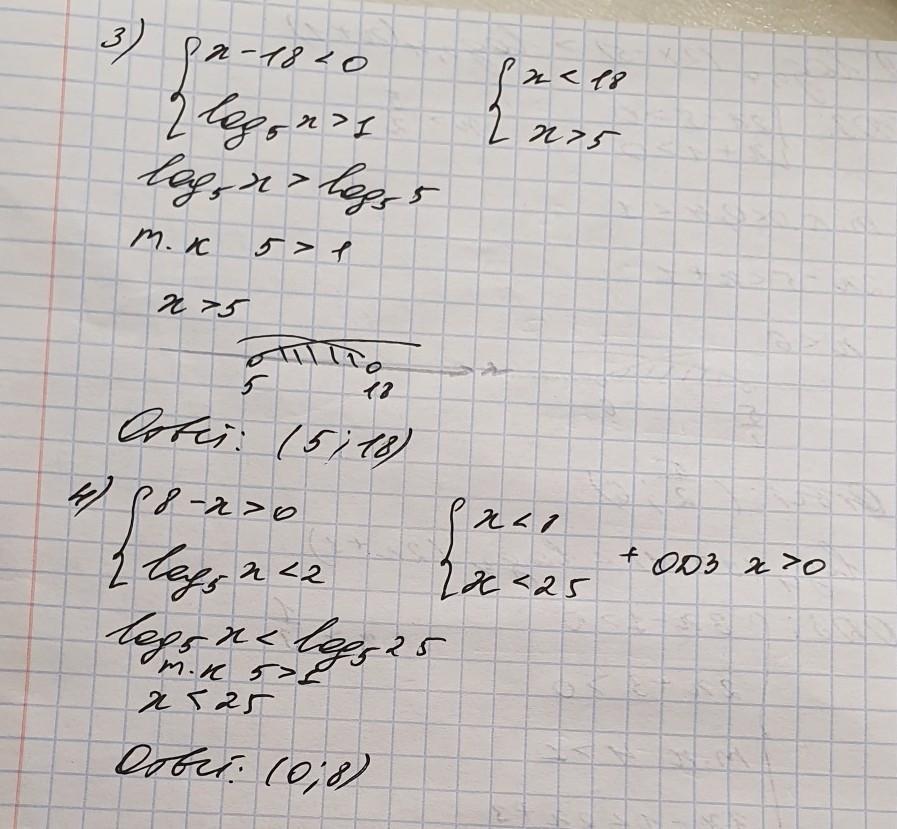 3) { x - 18 < 0 { x < 18
log₅ x > 1 x > 5
log₅ x > log₅ 5
т. к 5 > 1
x > 5
5 18 x
Ответ: (5; 18)
4) { 8 - x > 0 { x < 8
log₅ x < 2 x < 25 + ОДЗ x > 0
log₅ x < log₅ 25
т.к 5 > 1
x < 25
Ответ: (0; 8)